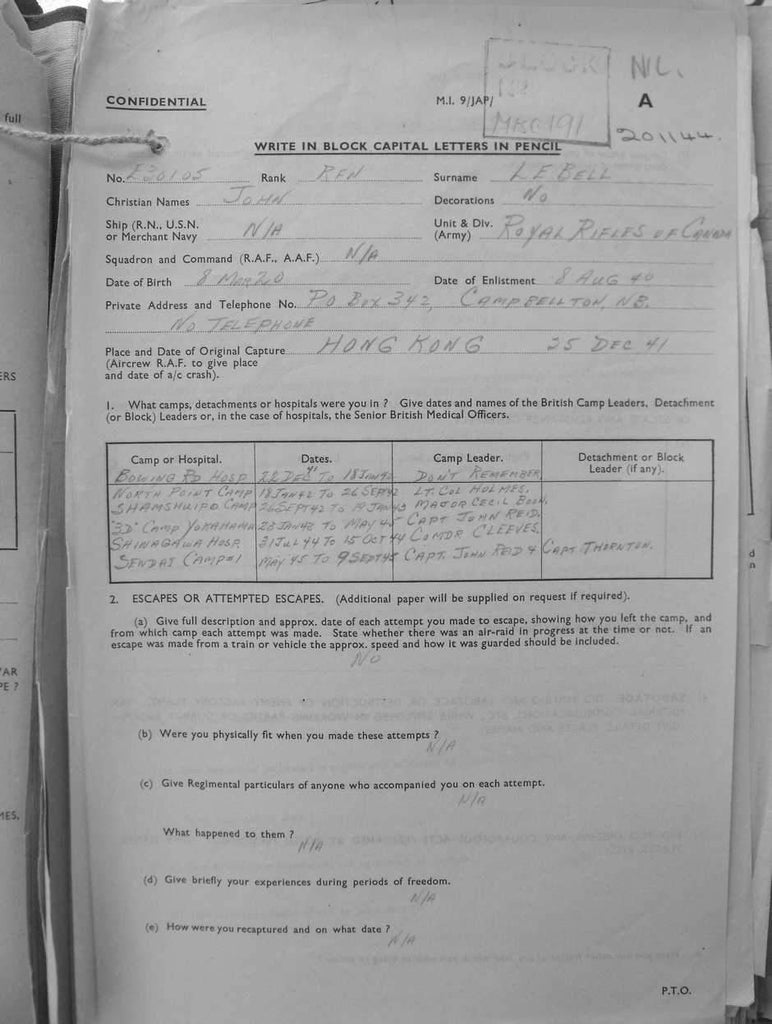 full
CONFIDENTIAL
M.I. 9/JAP/
NIL.
A
201144
WRITE IN BLOCK CAPITAL LETTERS IN PENCIL
No. E30105 Rank RFN Surname LEBELL
Christian Names JOHN Decorations NO
Ship (R.N., U.S.N. or Merchant Navy N/A Unit & Div. (Army) ROYAL RIFLES OF CANADA
Squadron and Command (R.A.F., A.A.F.) N/A
Date of Birth 8 MAR 20 Date of Enlistment 8 AUG 40
Private Address and Telephone No. PO BOX 342, CAMPBELLTON, NB.
NO TELEPHONE
Place and Date of Original Capture HONG KONG 25 DEC 41
(Aircrew R.A.F. to give place
and date of a/c crash).
1. What camps, detachments or hospitals were you in ? Give dates and names of the British Camp Leaders, Detachment
(or Block) Leaders or, in the case of hospitals, the Senior British Medical Officers.
Camp or Hospital. Dates. Camp Leader. Detachment or Block Leader (if any).
BOWING RD HOSP 22 DEC 41 TO 18 JAN 42 DON'T REMEMBER
NORTH POINT CAMP 18 JAN 42 TO 26 SEPT 42 LT. COL HOLMES.
SHAMSHUIPO CAMP 26 SEPT 42 TO 19 JAN 43 MAJOR CECIL BOON.
"3D" CAMP YOKAHAMA 23 JAN 43 TO MAY 45 CAPT JOHN REID.
SHINAGAWA HOSP. 31 JUL 44 TO 15 OCT 44 COMDR CLEEVES.
SENDAI CAMP #1 MAY 45 TO 9 SEPT 45 CAPT. JOHN REID & CAPT THORNTON.
2. ESCAPES OR ATTEMPTED ESCAPES. (Additional paper will be supplied on request if required).
(a) Give full description and approx. date of each attempt you made to escape, showing how you left the camp, and
from which camp each attempt was made. State whether there was an air-raid in progress at the time or not. If an
escape was made from a train or vehicle the approx. speed and how it was guarded should be included.
NO
(b) Were you physically fit when you made these attempts ?
N/A
(c) Give Regimental particulars of anyone who accompanied you on each attempt.
N/A
What happened to them ?
N/A
(d) Give briefly your experiences during periods of freedom.
N/A
(e) How were you recaptured and on what date ?
N/A
P.T.O.